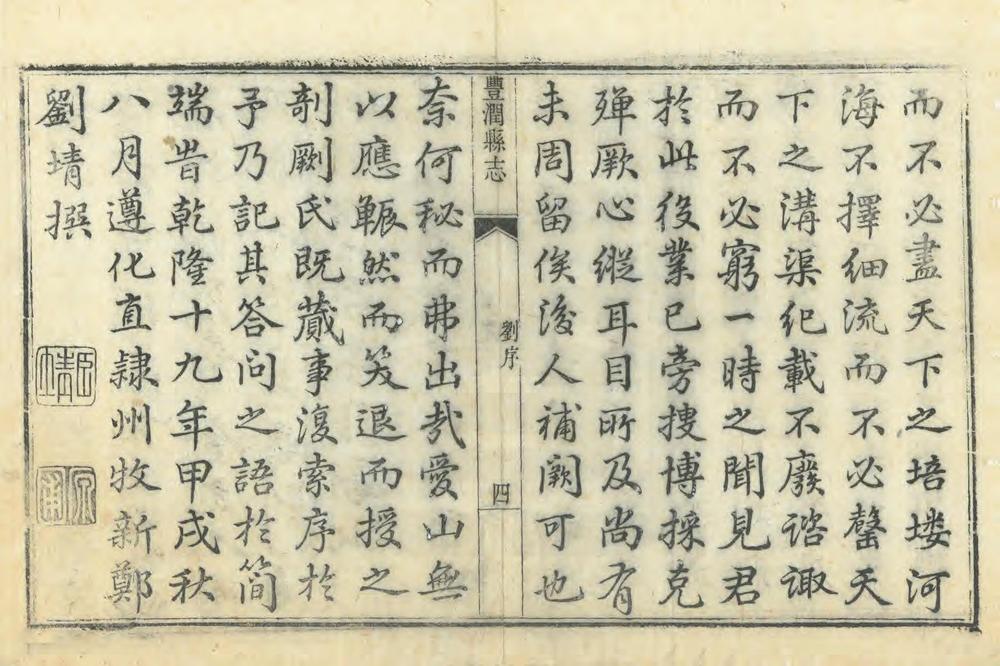 而不必盡天下之培塿河
海不擇細流而不必罄天
下之溝渠紀載不廢諮諏
而不必窮一時之聞見君
於此役業已旁搜博採克
殫厥心縱耳目所及尚有
未周留俟後人補闕可也
豐潤縣志
劉序
四
奈何秘而弗出哉愛山無
以應囅然而笑退而授之
剞劂氏既蕆事復索序於
予乃記其答問之語於簡
端旹乾隆十九年甲戌秋
八月遵化直隸州牧新鄭
劉埥撰